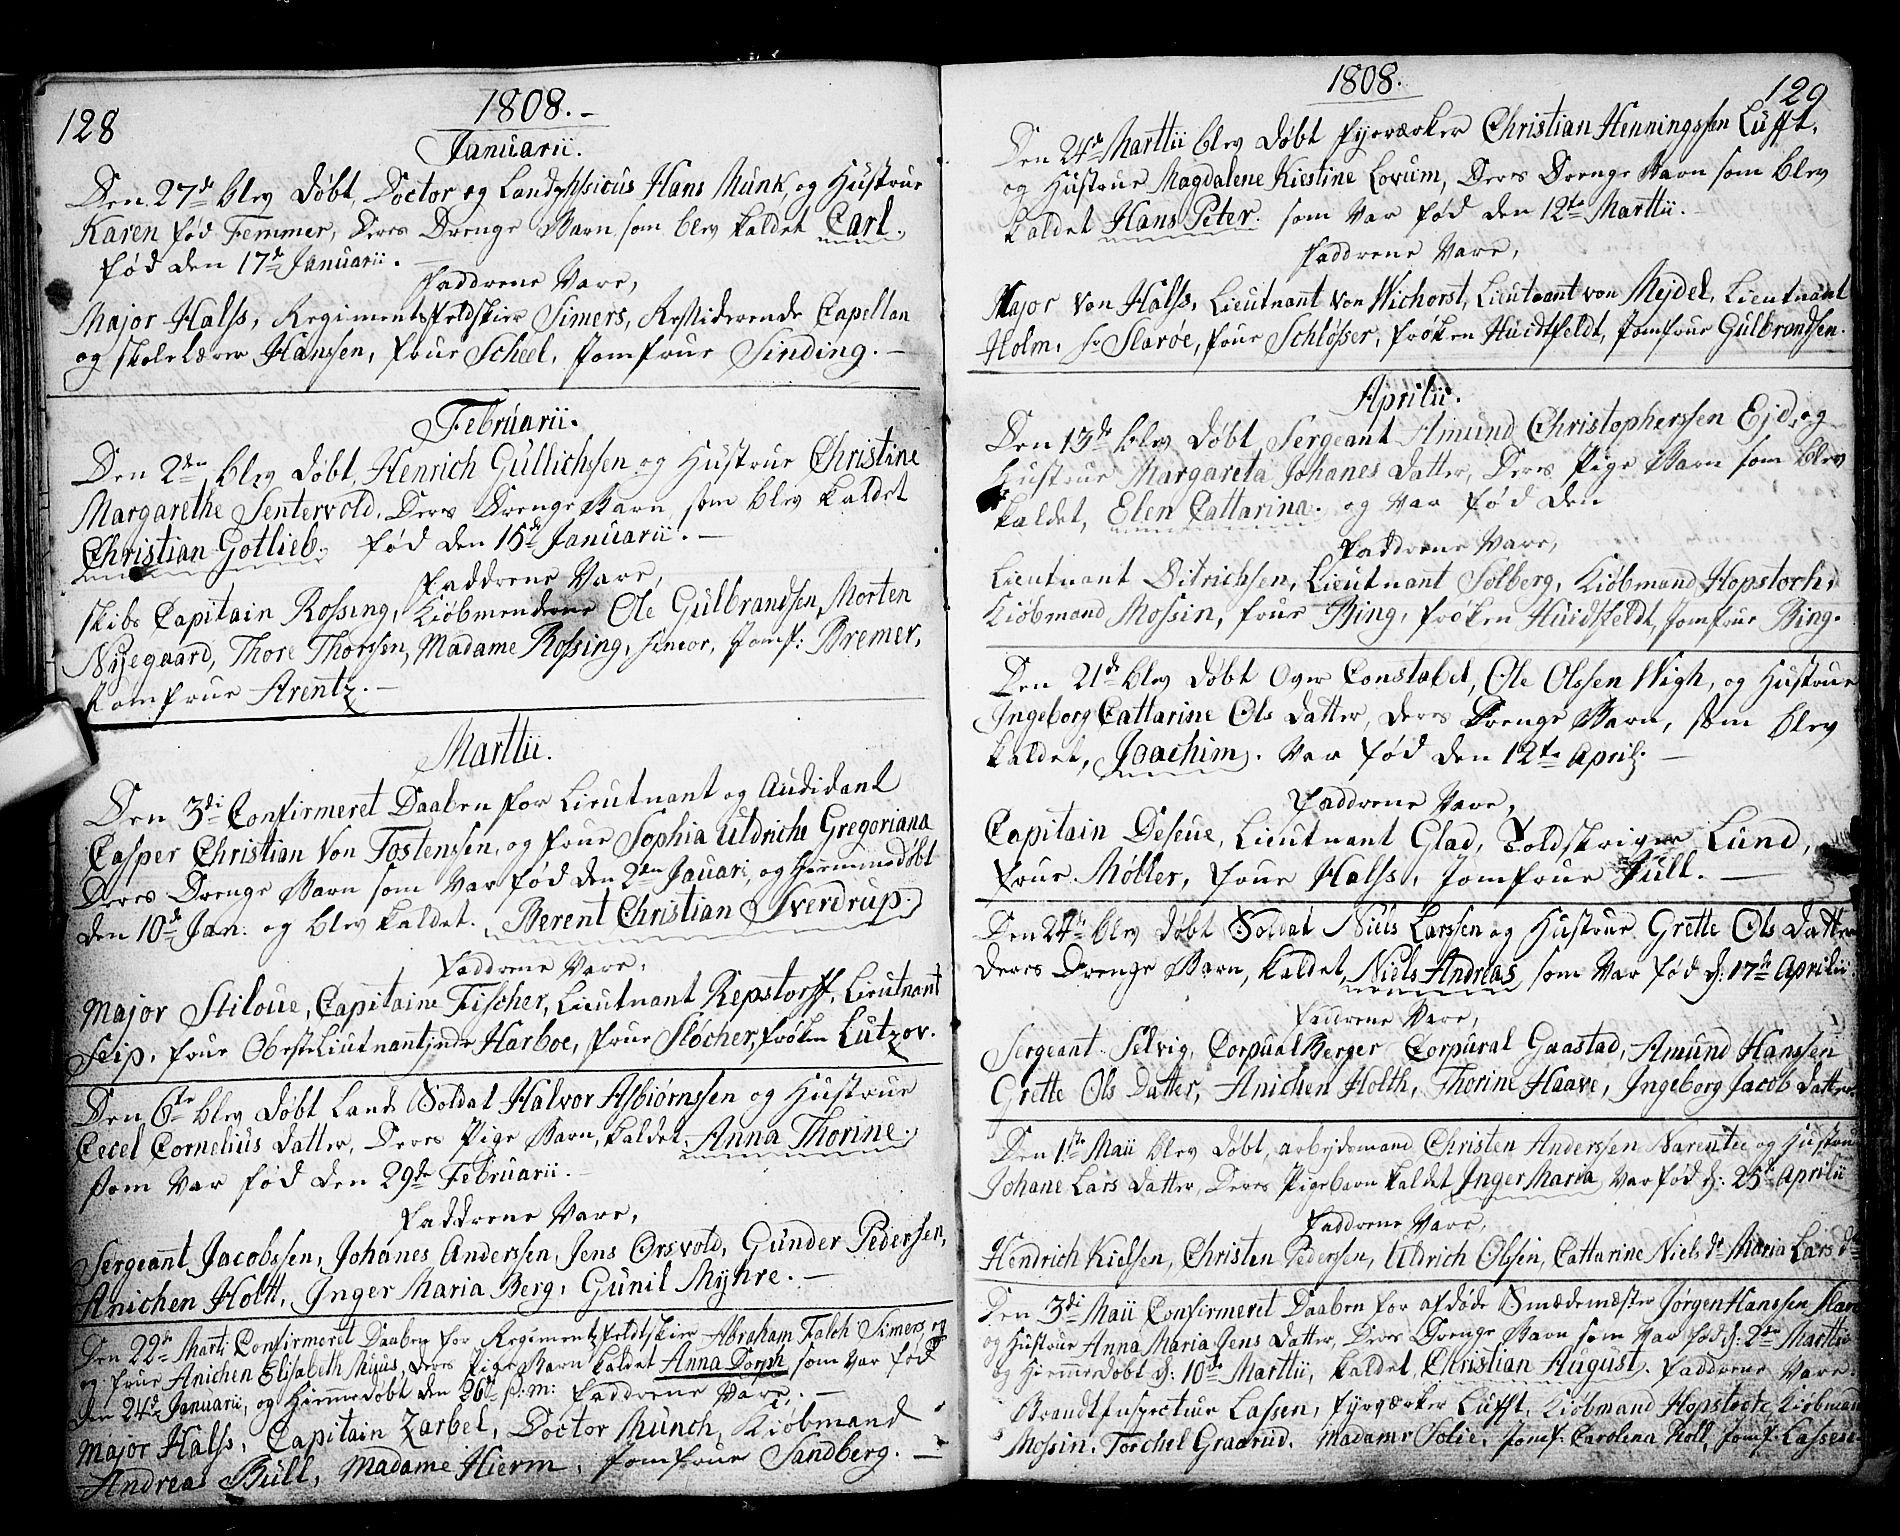 128
1808.-
Januarii.
Den 27de blev Døbt, Doctor og Landphysicus Hans Munk, og Hustrue
Karen fød Femmer, Deres Drenge Barn som blev kaldet Carl.
fød den 17de Januarii.
Faddrene Vare,
Major Halss, Regiments feldskier Simers, Residerende Capellan
og skolelærer Hanssen, frue Scheel, Jomfrue Sinding.-
Februarii.
Den 2den blev Døbt, Henrich Gullichssen og Hustrue Christine
Margarethe Sentervold, Deres Drenge Barn, som blev kaldet
Christian Gotlieb. fød den 15de Januarii.-
Faddrene Vare,
Skibs Capitain Rossing, Kiøbmendene Ole Gulbrandssen, Morten
Nyegaard, Thore Thorssen, Madame Rossing, Jomf: Bremer,
Jomfrue Arentz.-
Marttii.
Den 3di Confirmeret Daaben for Lieutnant og Audidant
Casper Christian Von Tostenssen, og frue Sophia Uldriche Gregoriana
Deres Drenge Barn som var fød den 2den Jauari, og Hiemmedøbt
den 10de Jan: og blev kaldet. Berent Christian Sverdrup.
Faddrene Vare,
Major Stiloue, Capitaine Fischer, Lieutnant Repstorff, Lieutnant
Seip, frue Obestliutnantinde Harboe, frue Sløcher, frøken Lutzov.
Den 6te blev Døbt Land Soldat Halvor Asbiørnssen og Hustrue
Cecel Cornelius datter, Deres Pige Barn, kaldet, Anna Thorine.
som var fød den 29de Februarii.-
Faddrene Vare,
Sergeant Jacobssen, Johanes Anderssen, Jens Orsvold, Gunder Pederssen,
Anichen Holtt, Inger Maria Berg, Gunil Myhre.-
Den 22de Marti Confirmeret Daaben for Regimentz feldskier Abraham Falch Simers, og
og frue Anichen Elisabeth Deres Pige Barn kaldet Anna Dorph som var fød
den 24de Januarii, og Hiemmedøbt den 26de s: m: Faddrene Vare.-
Major Halss, Capitain Zarbel, Doctor Munch, Kiøbmand
Andreas Bull, Madame Hierm, Jomfrue Sandberg.-
1808.
129
Den 24de Marttii blev Døbt fyrværker Christian Henningssen Lufft,
og Hustrue Magdalene Kiestine Lovum, Deres Drenge Barn som blev
kaldet Hans Peter. som var fød den 12te Marttii.-
Faddrene Vare,
Major von Halss, Lieutnant von Wichorst, Lieutnant von Mejdel, Lieutnant
Holm, Hr Slarøe, frue Schløsser, frøken Huidtfeldt, Jomfrue Gulbrandsen.
Aprilii.
Den 13de blev Døbt, Sergeant Amund Christopherssen Ejd, og
Hustrue Margareta Johanes datter, Deres Pige Barn som blev
kaldet, Elen Cattarina. og var fød den
Faddrene Vare,
Lieutnant Ditrichsen, Lieutnant Solberg, Kiøbmand Hopstoch,
Kiøbmand Mossin, frue Bing, frøken Huidtfeldt, Jomfrue Bing.
Den 21de blev Døbt Over Constabel, Ole Olssen Wigh, og Hustrue
Ingeborg Cattarine Ols datter, deres Drenge Barn, som blev
kaldet, Joachim. var fød den 12te April.-
Faddrene Vare,
Capitain Deseue, Lieutnant Glad, Toldskriver Lund,
frue Møller, frue Halss, Jomfrue Jull.-
Den 24de blev Døbt Soldat Niels Larssen og Hustrue Grette Ols datter
deres Drenge Barn, kaldet, Niels Andreas som var fød d: 17de Aprilii
Faddrene Vare,
Sergeant Selvig, Corpual Berger Corpural Gaastad, Amund Hanssen
Grette Ols datter, Anichen Holth, Thorine Haave, Ingeborg Jacob datter
Den 1ste Maii blev Døbt, arbejdsmand Christen Anderssen Narentee og Hustrue
Johane Lars datter, Deres Pigebarn kaldet Inger Maria var fød d: 25de Aprilii
Faddrene Vare,
Hendrich Kielsen, Christen Pederssen, Uldrich Olssin, Cattarine Niels dr Maria Lars dr
Den 3di Maii Confirmeret Daaben for afdøde Smædemæster Jørgen Hanssen
og Hustrue Anna Maria Jens datter, Deres Drenge Barn som var fød d: 2den Marttii
og Hiemmedøbt d: 10de Marttii, kaldet, Christian August. Faddrene Vare.
Brandt Inspecteur Lassen, fyrværker Lufft, Kiøbmand Hopstock, Kiøbmand
Mossin, Torchel Graarud, Madame Solie, Jomf: Carolina Roll, Jomf: Lassen